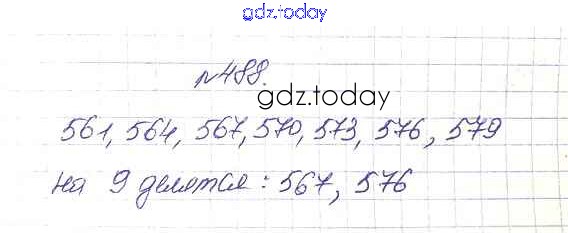 gdz.today
№488.
gdz.today
561, 564, 567, 570, 573, 576, 579
на 9 делятся: 567, 576